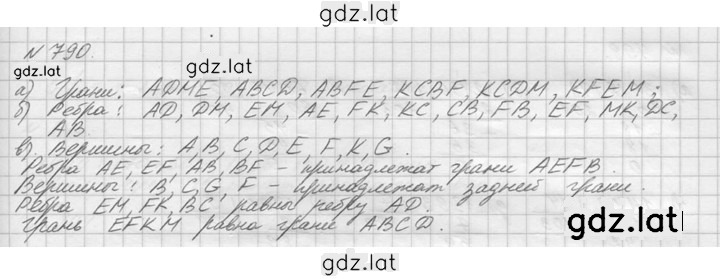 gdz.lat
N 790.
gdz.lat
а) Грани: ADME, ABCD, ABFE, KCBF, KCDM, KFEM;
б) Ребра: AD, DM, EM, AE, FK, KC, CB, FB, EF, MK, DC,
AB.
в) Вершины: A, B, C, D, E, F, K, G.
Ребра AE, EF, AB, BF - принадлежат грани AEFB.
Вершины: B, C, G, F - принадлежат задней грани.
Ребра EM, FK, BC равны ребру AD.
Грань EFKM равна грани ABCD.
gdz.lat
gdz.lat
gdz.lat